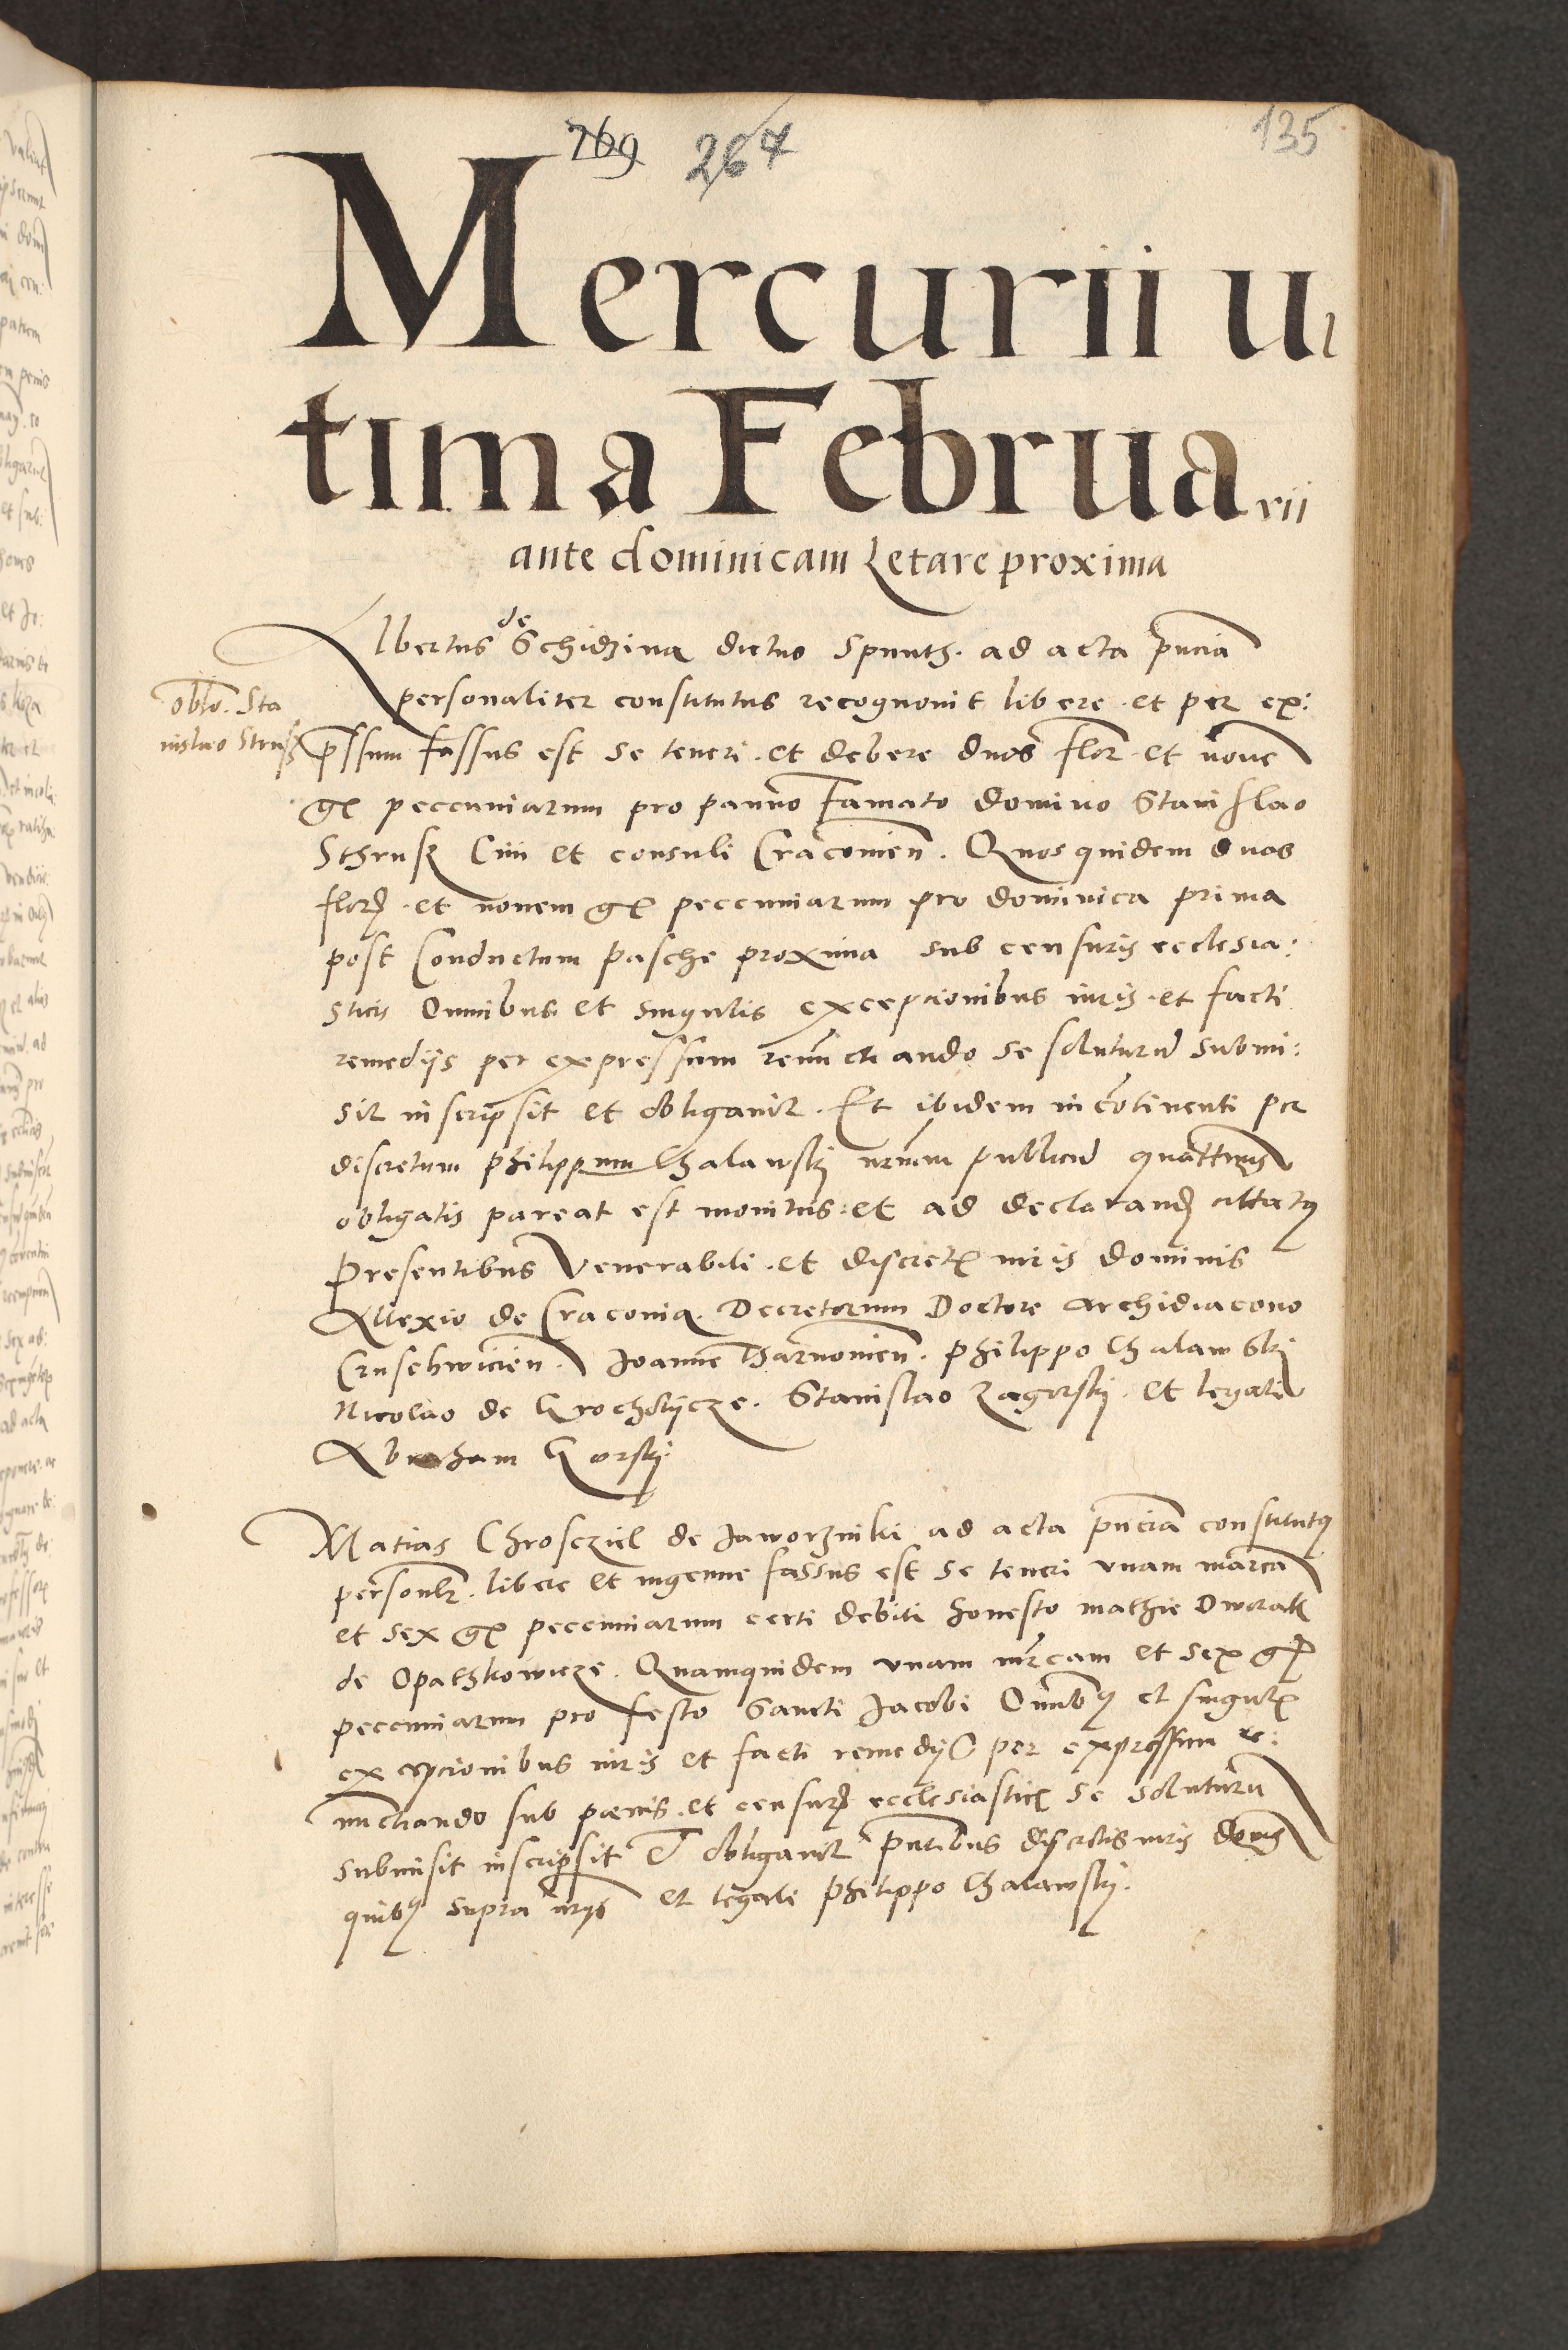 769 264 135
Mercurii ul
tima Februarii
ante dominicam Letare proxima
Albertus de Schidzina dictus Spunth. ad acta pñcia
personaliter constitutus recognovit libere et per ex:
oblo. Sta
nislao Strusz
pssum fassus est se teneri et debere duos flor et novē
gr peccuniarum pro panno Famato domino Stanislao
Sthrusz Civi et consuli Cracovien. Quos quidem duos
floꝝ et novem gr peccuniarum pro dominica prima
post Conductum pasche proxima sub censuris ecclesia:
sticis Omnibus et singulis excepcionibus iuris et facti
remedijs per expressum renūctiando se soluturū submi:
sit inscripsit et obligavit. Et ibidem in cōtinenti per
discretum Philippum Chalawskj nrium publicū quattenus
obligatis pareat est monitus et ad declarand citatus
Presentibus Venerabili et discretis viris dominis
Allexio de Cracovia Decretorum Doctore Archidiacono
Crusehwicien. Joanne Tharnovien. Philippo Chalawskj
Nicolao de Grocholijcze. Stanislao Zagorskj et legali
Abraham Gorskj.
Matias Chroscziel de Jaworzniki ad acta pñcia constitutus
personlr. libere et ingenue fassus est se teneri unam marcā
et sex gr peccuniarum certi debiti honesto mathie Dworak
de Opathkowicze. Quamquidem unam mrcam et sex gr
peccuniarum pro festo Sancti Jacobi Omibus et singulis
excepcionibus iuris et facti remedijs per expressum re:
nuctiando sub poenis et censuris ecclesiasticis se soluturū
submisit inscripsit et obligavit pñtibus discretis viris dominis
quibus supra nrijs et legali Philippo Chalawskj.